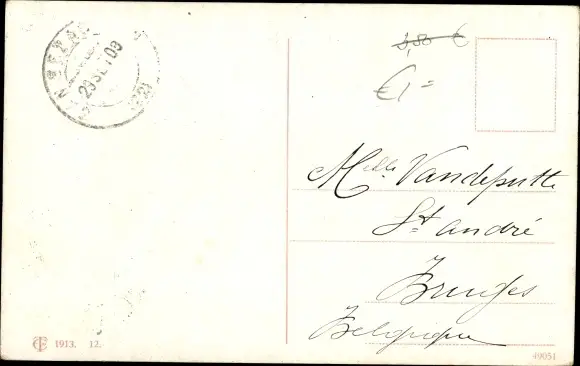 29 SET 09
3,50 €
€1=
Melle Vandeputte
St. andré
Bruges
Belgique
1913. 12.
49051